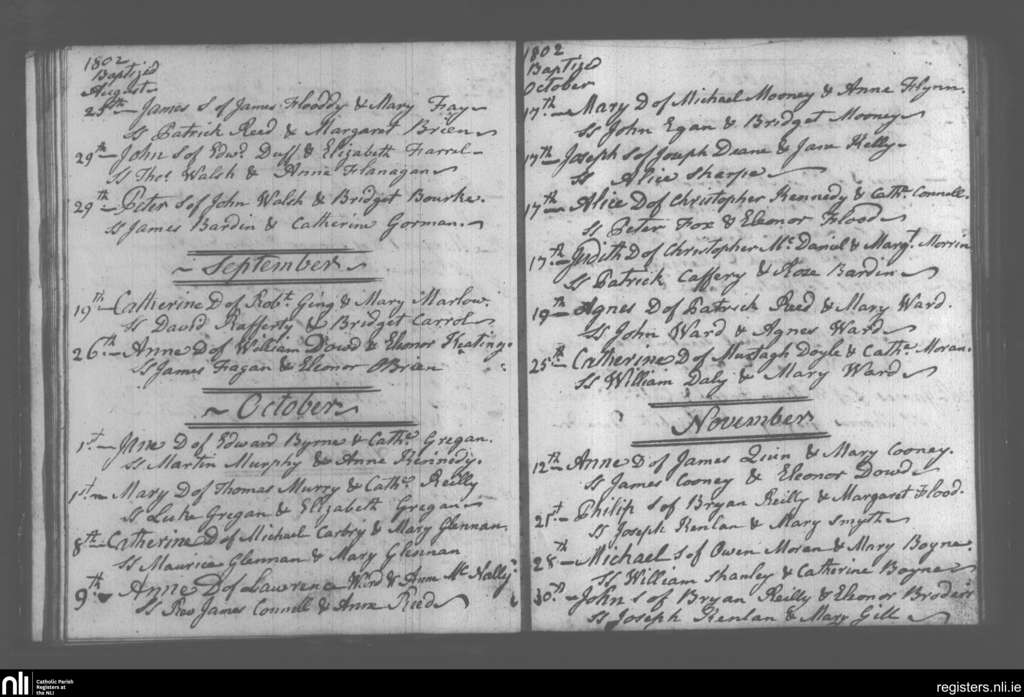 1802
Baptized
August
25th James S of James Flooddy & Mary Fay
Ss Patrick Reed & Margaret Brien
29th John S of Edwd. Duff & Elizabeth Farrel
Ss Thos. Walsh & Anne Flanagan
29th Peter S of John Walsh & Bridget Bourke.
Ss James Bardin & Catherine Gorman.
September
19th Catherine D of Robt. Ging & Mary Marlow.
Ss David Rafferty & Bridget Carrol
26th Anne D of William Dowd & Elenor Keating.
Ss James Fagan & Eleonor OBrien
October
1st Jane D of Edward Byrne & Cathe. Gregan.
Ss Martin Murphy & Anne Kennedy.
1st Mary D of Thomas Murry & Cathe. Reilly
Ss Luke Gregan & Elizabeth Gregan
8th Catherine D of Michael Carbry & Mary Glennan
Ss Maurice Glennan & Mary Glennan
9th Anne D of Lawrence Ward & Anne Mc Nally
Ss Revd James Connell & Anne Reed
1802
Baptized
October
17th Mary D of Michael Mooney & Anne Flynn.
Ss John Egan & Bridget Mooney
17th Joseph S of Joseph Deane & Jane Kelly
Ss Alice Sharpe
17th Alice D of Christopher Kennedy & Cathe. Connell.
Ss Peter Fox & Eleonor Flood
17th Judith D of Christopher Mc Daniel & Margt. Morrin
Ss Patrick Caffery & Rose Bardin
19th Agnes D of Patrick Reed & Mary Ward.
Ss John Ward & Agnes Ward
25th Catherine D of Murtagh Doyle & Cathe. Moran.
Ss William Daly & Mary Ward
November
12th Anne D of James Quin & Mary Cooney.
Ss James Cooney & Eleonor Dowd
21st Philip S of Bryan Reilly & Margaret Flood.
Ss Joseph Kenlan & Mary Smyth
28th Michael S of Owen Moran & Mary Boyne.
Ss William Shanley & Catherine Boyne
30th John S of Bryan Reilly & Eleonor
Ss Joseph Kenlan & Mary Gill
nli Catholic Parish Registers at the NLI
registers.nli.ie